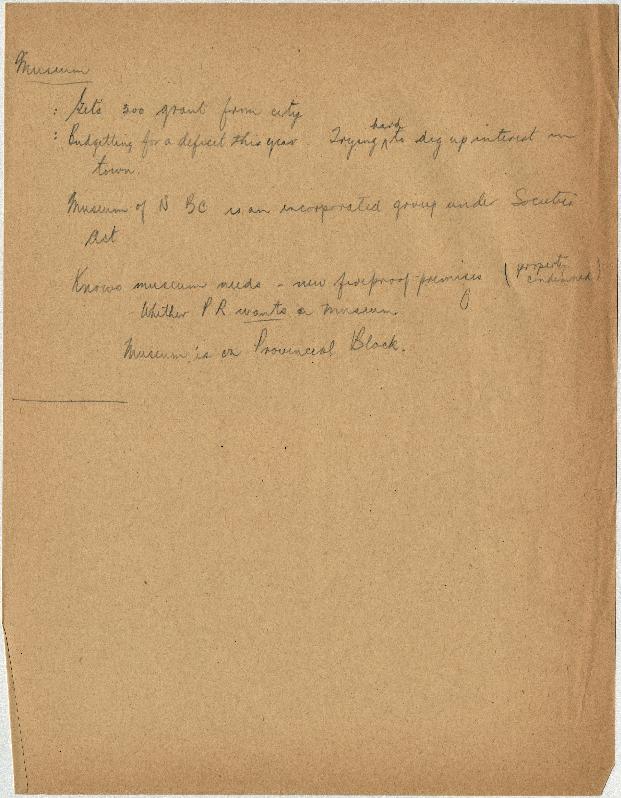 Museum
: Gets 300 grant from city
: Budgetting for a deficit this year. Trying hard to dig up interest in
town.
Museum of N BC is an incorporated group under Societies
Act
Knows museum needs - new fireproof premises (property condemned)
Whether P R wants a museum.
Museum is on Provincial Block.